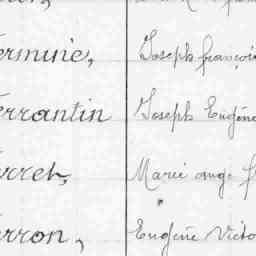 ermine, Joseph françoi
errantin Joseph Eugène
erret, Marie ange f
erron, Eugène Victo